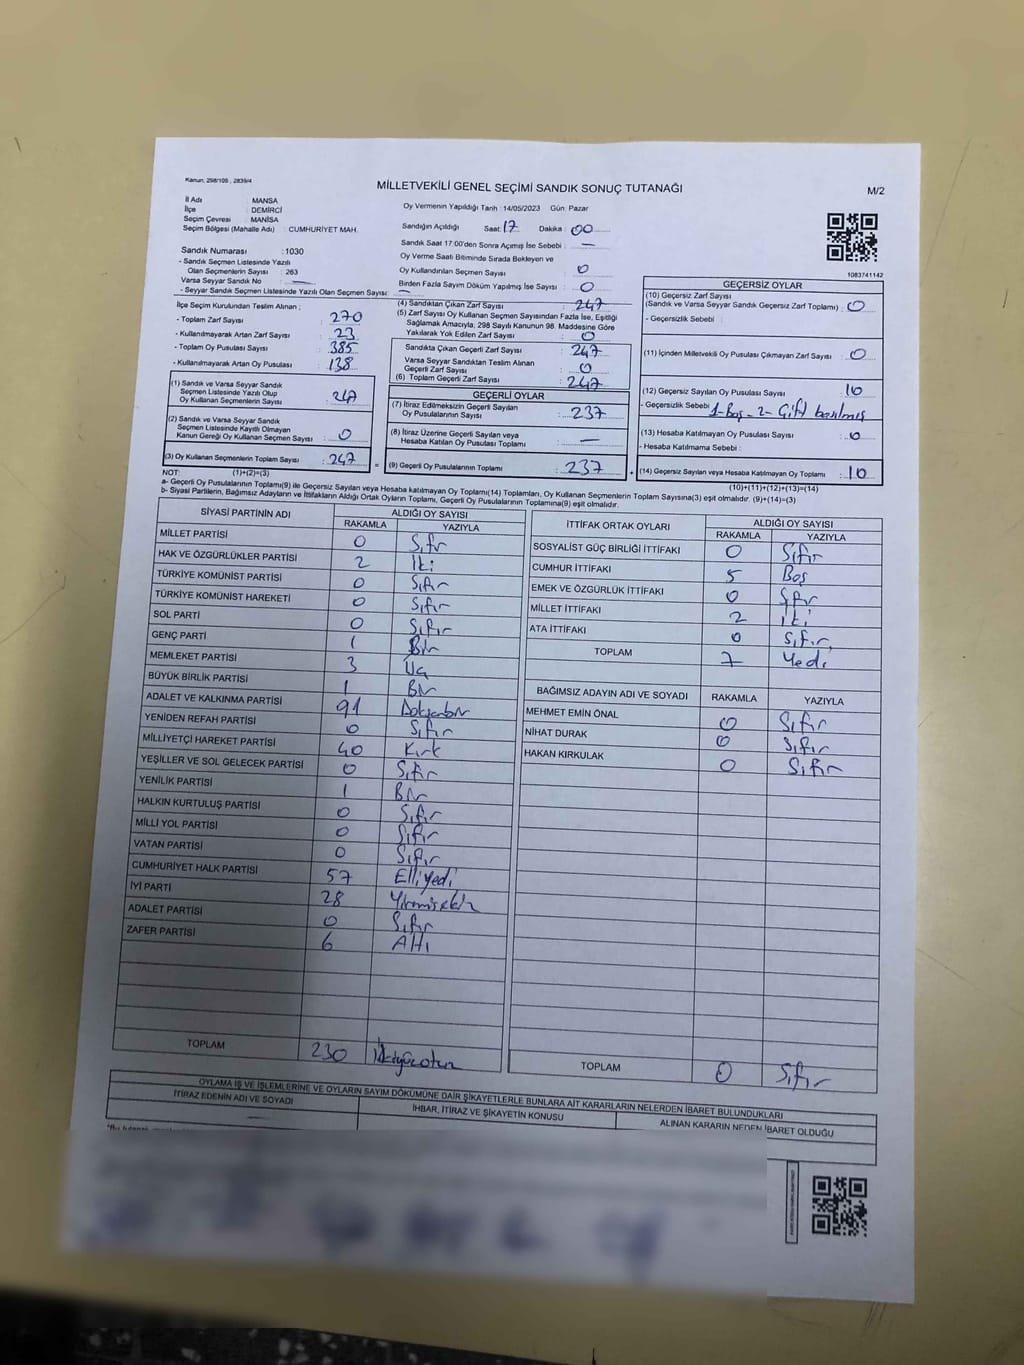 Kanun, 298/105 , 2839/4
MİLLETVEKİLİ GENEL SEÇİMİ SANDIK SONUÇ TUTANAĞI
M/2
İl Adı : MANİSA
İlçe : DEMİRCİ
Seçim Çevresi : MANİSA
Seçim Bölgesi (Mahalle Adı) : CUMHURİYET MAH.
Sandık Numarası : 1030
- Sandık Seçmen Listesinde Yazılı
Olan Seçmenlerin Sayısı : 263
Varsa Seyyar Sandık No : —
- Seyyar Sandık Seçmen Listesinde Yazılı Olan Seçmen Sayısı: —
Oy Vermenin Yapıldığı Tarih : 14/05/2023 Gün: Pazar
Sandığın Açıldığı Saat: 17 Dakika : 00
Sandık Saat 17:00'den Sonra Açımış İse Sebebi : —
Oy Verme Saati Bitiminde Sırada Bekleyen ve
Oy Kullandırılan Seçmen Sayısı : 0
Birden Fazla Sayım Döküm Yapılmış İse Sayısı : 0
1083741142
İlçe Seçim Kurulundan Teslim Alınan ;
- Toplam Zarf Sayısı : 270
- Kullanılmayarak Artan Zarf Sayısı : 23
- Toplam Oy Pusulası Sayısı : 385
- Kullanılmayarak Artan Oy Pusulası : 138
(1) Sandık ve Varsa Seyyar Sandık
Seçmen Listesinde Yazılı Olup
Oy Kullanan Seçmenlerin Sayısı : 247
(2) Sandık ve Varsa Seyyar Sandık
Seçmen Listesinde Kayıtlı Olmayan
Kanun Gereği Oy Kullanan Seçmen Sayısı : 0
(3) Oy Kullanan Seçmenlerin Toplam Sayısı : 247
(4) Sandıktan Çıkan Zarf Sayısı : 247
(5) Zarf Sayısı Oy Kullanan Seçmen Sayısından Fazla İse, Eşitliği
Sağlamak Amacıyla, 298 Sayılı Kanunun 98. Maddesine Göre
Yakılarak Yok Edilen Zarf Sayısı : 0
Sandıkta Çıkan Geçerli Zarf Sayısı : 247
Varsa Seyyar Sandıktan Teslim Alınan
Geçerli Zarf Sayısı : 0
(6) Toplam Geçerli Zarf Sayısı : 247
GEÇERLİ OYLAR
(7) İtiraz Edilmeksizin Geçerli Sayılan
Oy Pusulalarının Sayısı : 237
(8) İtiraz Üzerine Geçerli Sayılan veya
Hesaba Katılan Oy Pusulası Toplamı : —
= (9) Geçerli Oy Pusulalarının Toplamı : 237
GEÇERSİZ OYLAR
(10) Geçersiz Zarf Sayısı
(Sandık ve Varsa Seyyar Sandık Geçersiz Zarf Toplamı) : 0
- Geçersizlik Sebebi :
(11) İçinden Milletvekili Oy Pusulası Çıkmayan Zarf Sayısı : 0
(12) Geçersiz Sayılan Oy Pusulası Sayısı : 10
- Geçersizlik Sebebi : 1-Boş - 2- Çift basılmış
(13) Hesaba Katılmayan Oy Pusulası Sayısı : 0
- Hesaba Katılmama Sebebi :
+ (14) Geçersiz Sayılan veya Hesaba Katılmayan Oy Toplamı : 10
NOT: (1)+(2)=(3)
(10)+(11)+(12)+(13)=(14)
a- Geçerli Oy Pusulalarının Toplamı(9) ile Geçersiz Sayılan veya Hesaba katılmayan Oy Toplamı(14) Toplamları, Oy Kullanan Seçmenlerin Toplam Sayısına(3) eşit olmalıdır. (9)+(14)=(3)
b- Siyasi Partilerin, Bağımsız Adayların ve İttifakların Aldığı Ortak Oyların Toplamı, Geçerli Oy Pusulalarının Toplamına(9) eşit olmalıdır.
SİYASİ PARTİNİN ADI ALDIĞI OY SAYISI
RAKAMLA YAZIYLA
MİLLET PARTİSİ 0 Sıfır
HAK VE ÖZGÜRLÜKLER PARTİSİ 2 İki
TÜRKİYE KOMÜNİST PARTİSİ 0 Sıfır
TÜRKİYE KOMÜNİST HAREKETİ 0 Sıfır
SOL PARTİ 0 Sıfır
GENÇ PARTİ 1 Bir
MEMLEKET PARTİSİ 3 Üç
BÜYÜK BİRLİK PARTİSİ 1 Bir
ADALET VE KALKINMA PARTİSİ 91 Doksanbir
YENİDEN REFAH PARTİSİ 0 Sıfır
MİLLİYETÇİ HAREKET PARTİSİ 40 Kırk
YEŞİLLER VE SOL GELECEK PARTİSİ 0 Sıfır
YENİLİK PARTİSİ 1 Bir
HALKIN KURTULUŞ PARTİSİ 0 Sıfır
MİLLİ YOL PARTİSİ 0 Sıfır
VATAN PARTİSİ 0 Sıfır
CUMHURİYET HALK PARTİSİ 57 Elliyedi
İYİ PARTİ 28 Yirmisekiz
ADALET PARTİSİ 0 Sıfır
ZAFER PARTİSİ 6 Altı
TOPLAM 230 İkiyüzotuz
İTTİFAK ORTAK OYLARI ALDIĞI OY SAYISI
RAKAMLA YAZIYLA
SOSYALİST GÜÇ BİRLİĞİ İTTİFAKI 0 Sıfır
CUMHUR İTTİFAKI 5 Beş
EMEK VE ÖZGÜRLÜK İTTİFAKI 0 Sıfır
MİLLET İTTİFAKI 2 İki
ATA İTTİFAKI 0 Sıfır
TOPLAM 7 Yedi
BAĞIMSIZ ADAYIN ADI VE SOYADI RAKAMLA YAZIYLA
MEHMET EMİN ÖNAL 0 Sıfır
NİHAT DURAK 0 Sıfır
HAKAN KIRKULAK 0 Sıfır
TOPLAM 0 Sıfır
OYLAMA İŞ VE İŞLEMLERİNE VE OYLARIN SAYIM DÖKÜMÜNE DAİR ŞİKAYETLERLE BUNLARA AİT KARARLARIN NELERDEN İBARET BULUNDUKLARI
İTİRAZ EDENİN ADI VE SOYADI İHBAR, İTİRAZ VE ŞİKAYETİN KONUSU ALINAN KARARIN NEDEN İBARET OLDUĞU
—